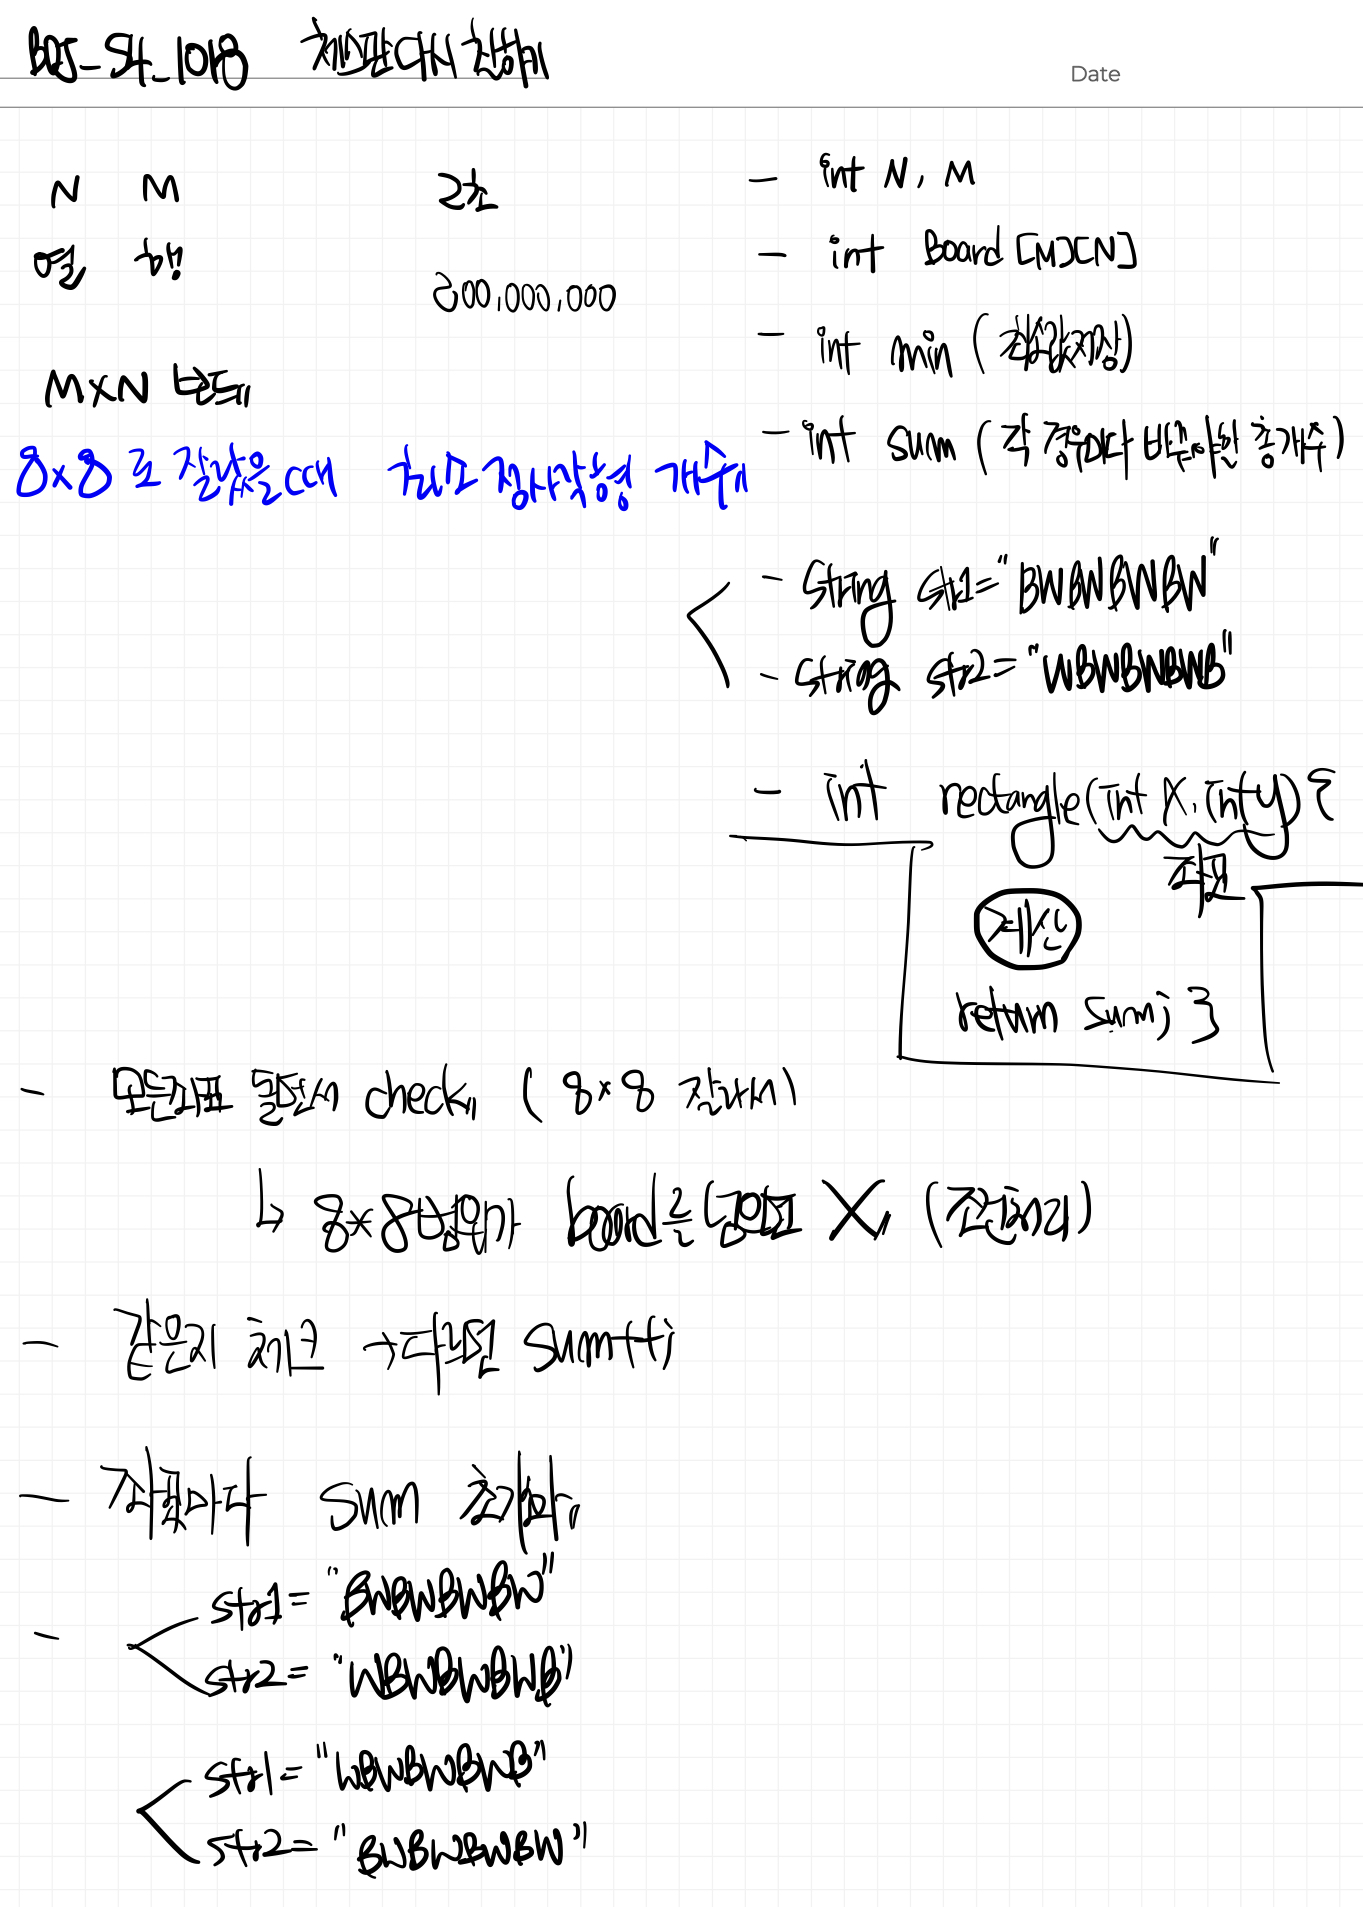 BOJ_S4_1018 체스판 다시 칠하기
Date
N M 2초
열 행
200,000,000
M×N 보드
8×8 로 잘랐을 때 최소 정사각형 개수
- int N, M
- int Board [M][N]
- int min (최솟값저장)
- int sum (각 경우마다 바꿔야할 총 개수)
- string str1="BWBWBWBW"
- string str2="WBWBWBWB"
- int rectangle(int x, int y) {
좌표
계산
return sum; }
- 모든좌표 돌면서 check (8×8 잘라서)
↳ 8×8범위가 board를 넘으면 X (전처리)
- 같은지 체크 → 다르면 sum++;
- 좌표마다 sum 초기화
- str1= "BWBWBWBW"
str2= "WBWBWBWB"
str1= "WBWBWBWB"
str2= "BWBWBWBW"